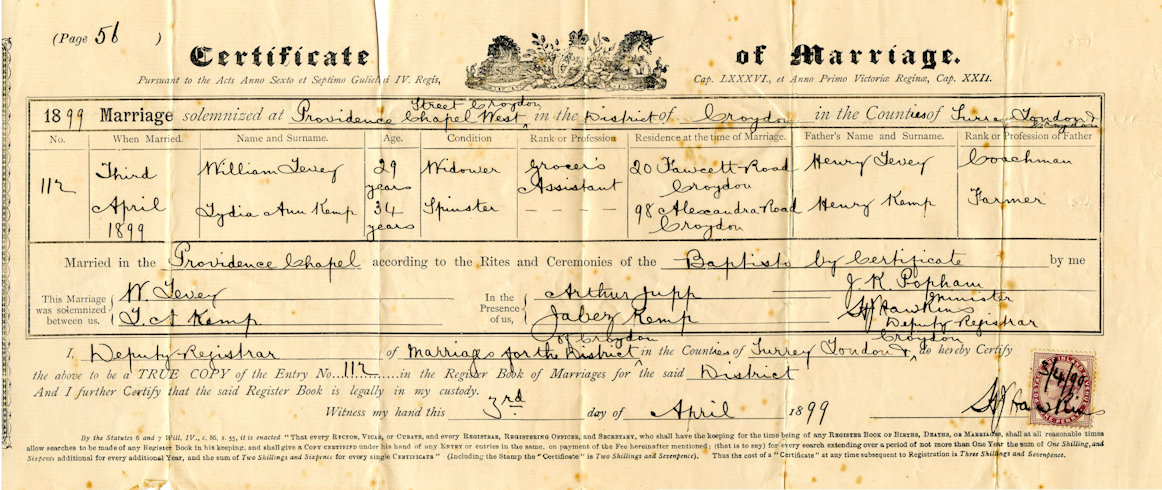 (Page 56 )
Certificate of Marriage.
Pursuant to the Acts Anno Sexto et Septimo Gulielmi IV. Regis, Cap. LXXXVI., et Anno Primo Victoriæ Reginæ, Cap. XXII.
Street Croydon
1899 Marriage solemnized at Providence Chapel West in the District of Croydon in the Counties of Surrey London & Croydon
No. When Married. Name and Surname. Age. Condition Rank or Profession Residence at the time of Marriage. Father's Name and Surname. Rank or Profession of Father
112 Third William Tevey 29 years Widower Grocer's Assistant 20 Fawcett Road Croydon Henry Tevey Coachman
April 1899 Lydia Ann Kemp 34 years Spinster – – – – 98 Alexandra Road Croydon Henry Kemp Farmer
Married in the Providence Chapel according to the Rites and Ceremonies of the Baptists by Certificate by me
This Marriage was solemnized between us, W. Tevey In the Presence of us, Arthur Jupp J K Popham Minister
L. A Kemp Jabez Kemp of Croydon Hawkins Deputy Registrar Croydon
I, Deputy Registrar of Marriages for the District in the Counties of Surrey London &, do hereby Certify
the above to be a TRUE COPY of the Entry No. 112 in the Register Book of Marriages for the said District
And I further Certify that the said Register Book is legally in my custody.
Witness my hand this 3rd day of April 1899 Hawkins
3/4/99
By the Statutes 6 and 7 Will, IV., c. 86, s. 35, it is enacted "That every RECTOR, VICAR, or CURATE, and every REGISTRAR, REGISTERING OFFICER, and SECRETARY, who shall have the keeping for the time being of any REGISTER BOOK OF BIRTHS, DEATHS, OR MARRIAGES, shall at all reasonable times
allow searches to be made of any Register Book in his keeping, and shall give a COPY CERTIFIED under his hand of any ENTRY or entries in the same, on payment of the Fee hereinafter mentioned; (that is to say) for every search extending over a period of not more than One Year the sum of One Shilling, and
Sixpence additional for every additional Year, and the sum of Two Shillings and Sixpence for every single CERTIFICATE" (Including the Stamp the "Certificate" is Two Shillings and Sevenpence). Thus the cost of a "Certificate" at any time subsequent to Registration is Three Shillings and Sevenpence.